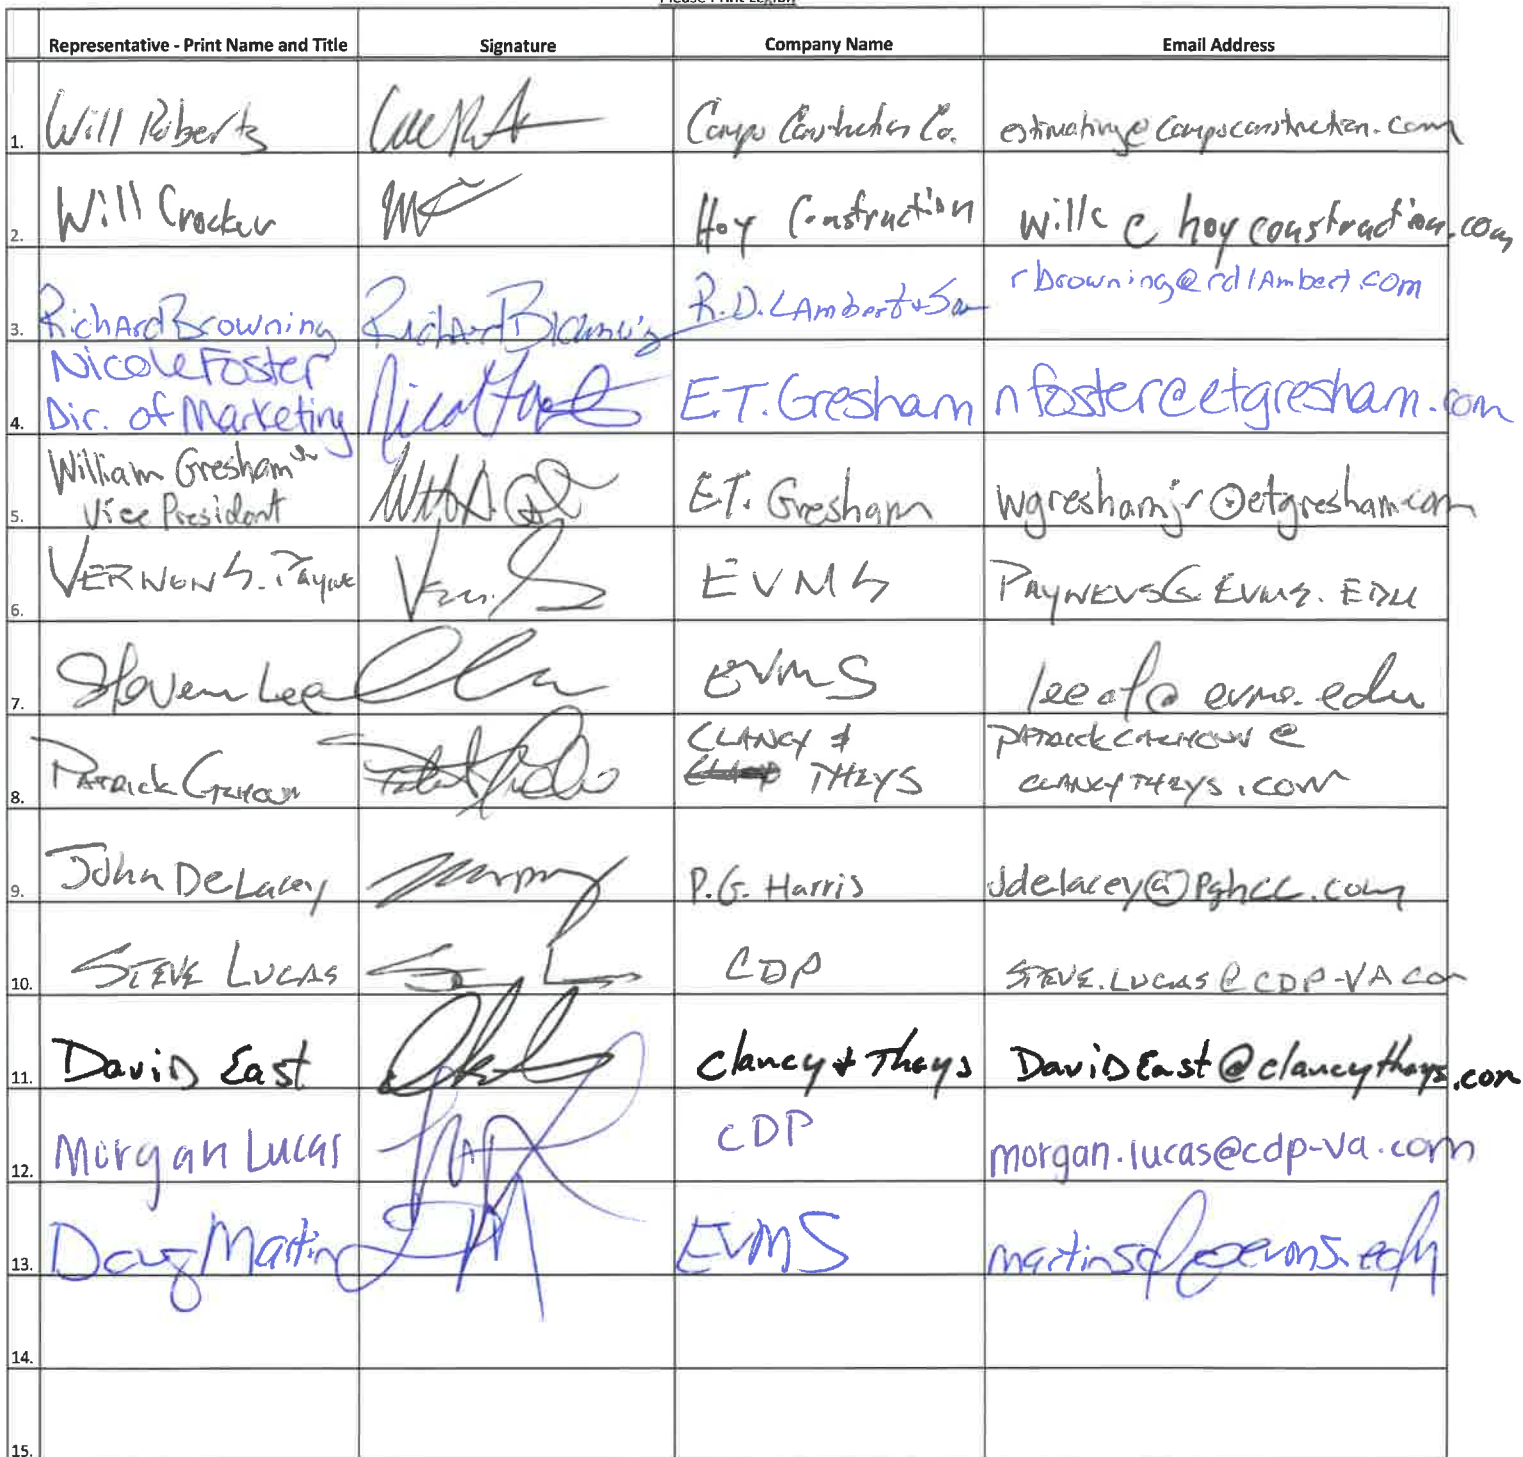 Representative - Print Name and Title Signature Company Name Email Address
1. Will Roberts Campo Construction Co. estimating@campoconstruction.com
2. Will Crocker Hoy Construction willc@hoyconstruction.com
3. Richard Browning Richard Browning R.D. LAmbert + Son rbrowning@rdlAmbert.com
Nicole Foster
4. Dir. of Marketing E.T. Gresham nfoster@etgresham.com
William Gresham Jr
5. Vice President E.T. Gresham wgreshamjr@etgresham.com
6. VERNON S. Payne EVMS PAYNEVS@EVMS.EDU
7. Steven Lee EVMS @evms.edu
CLANCY & PATRICKCALHOUN@
8. PATRICK CALHOUN THEYS CLANCYTHEYS.COM
9. John DeLacey P.G. Harris jdelacey@pghcc.com
10. STEVE LUCAS CDP STEVE.LUCAS@CDP-VA.COM
11. DaviD East Clancy + Theys DaviDEast@clancytheys.com
12. Morgan Lucas CDP morgan.lucas@cdp-va.com
13. Doug Martin EVMS martinsd@evms.edu
14.
15.